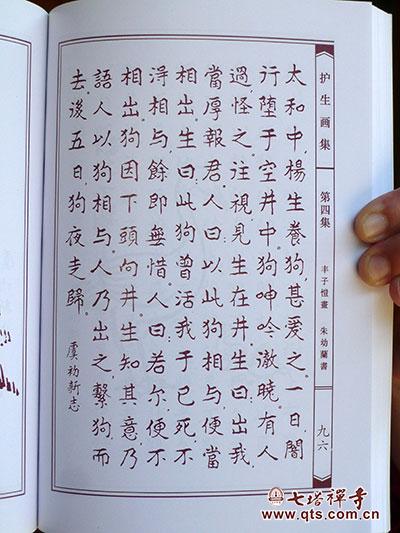 护生画集 第四集 丰子愷畫 朱幼蘭書 九六
太和中,楊生養狗,甚愛之。一日,闇
行墮于空井中。狗呻吟澈曉。有人
過,怪之。往視,見生在井。生曰:出我,
當厚報君。人曰:以此狗相與,便當
相出。生曰:此狗曾活我于已死,不
淂相與,餘即無惜。人曰:若尔,便不
相出。狗因下頭向井。生知其意,乃
語人以狗相與。人乃出之,繫狗而
去。後五日,狗夜走歸。 虞初新志
七塔禅寺
www.qts.com.cn